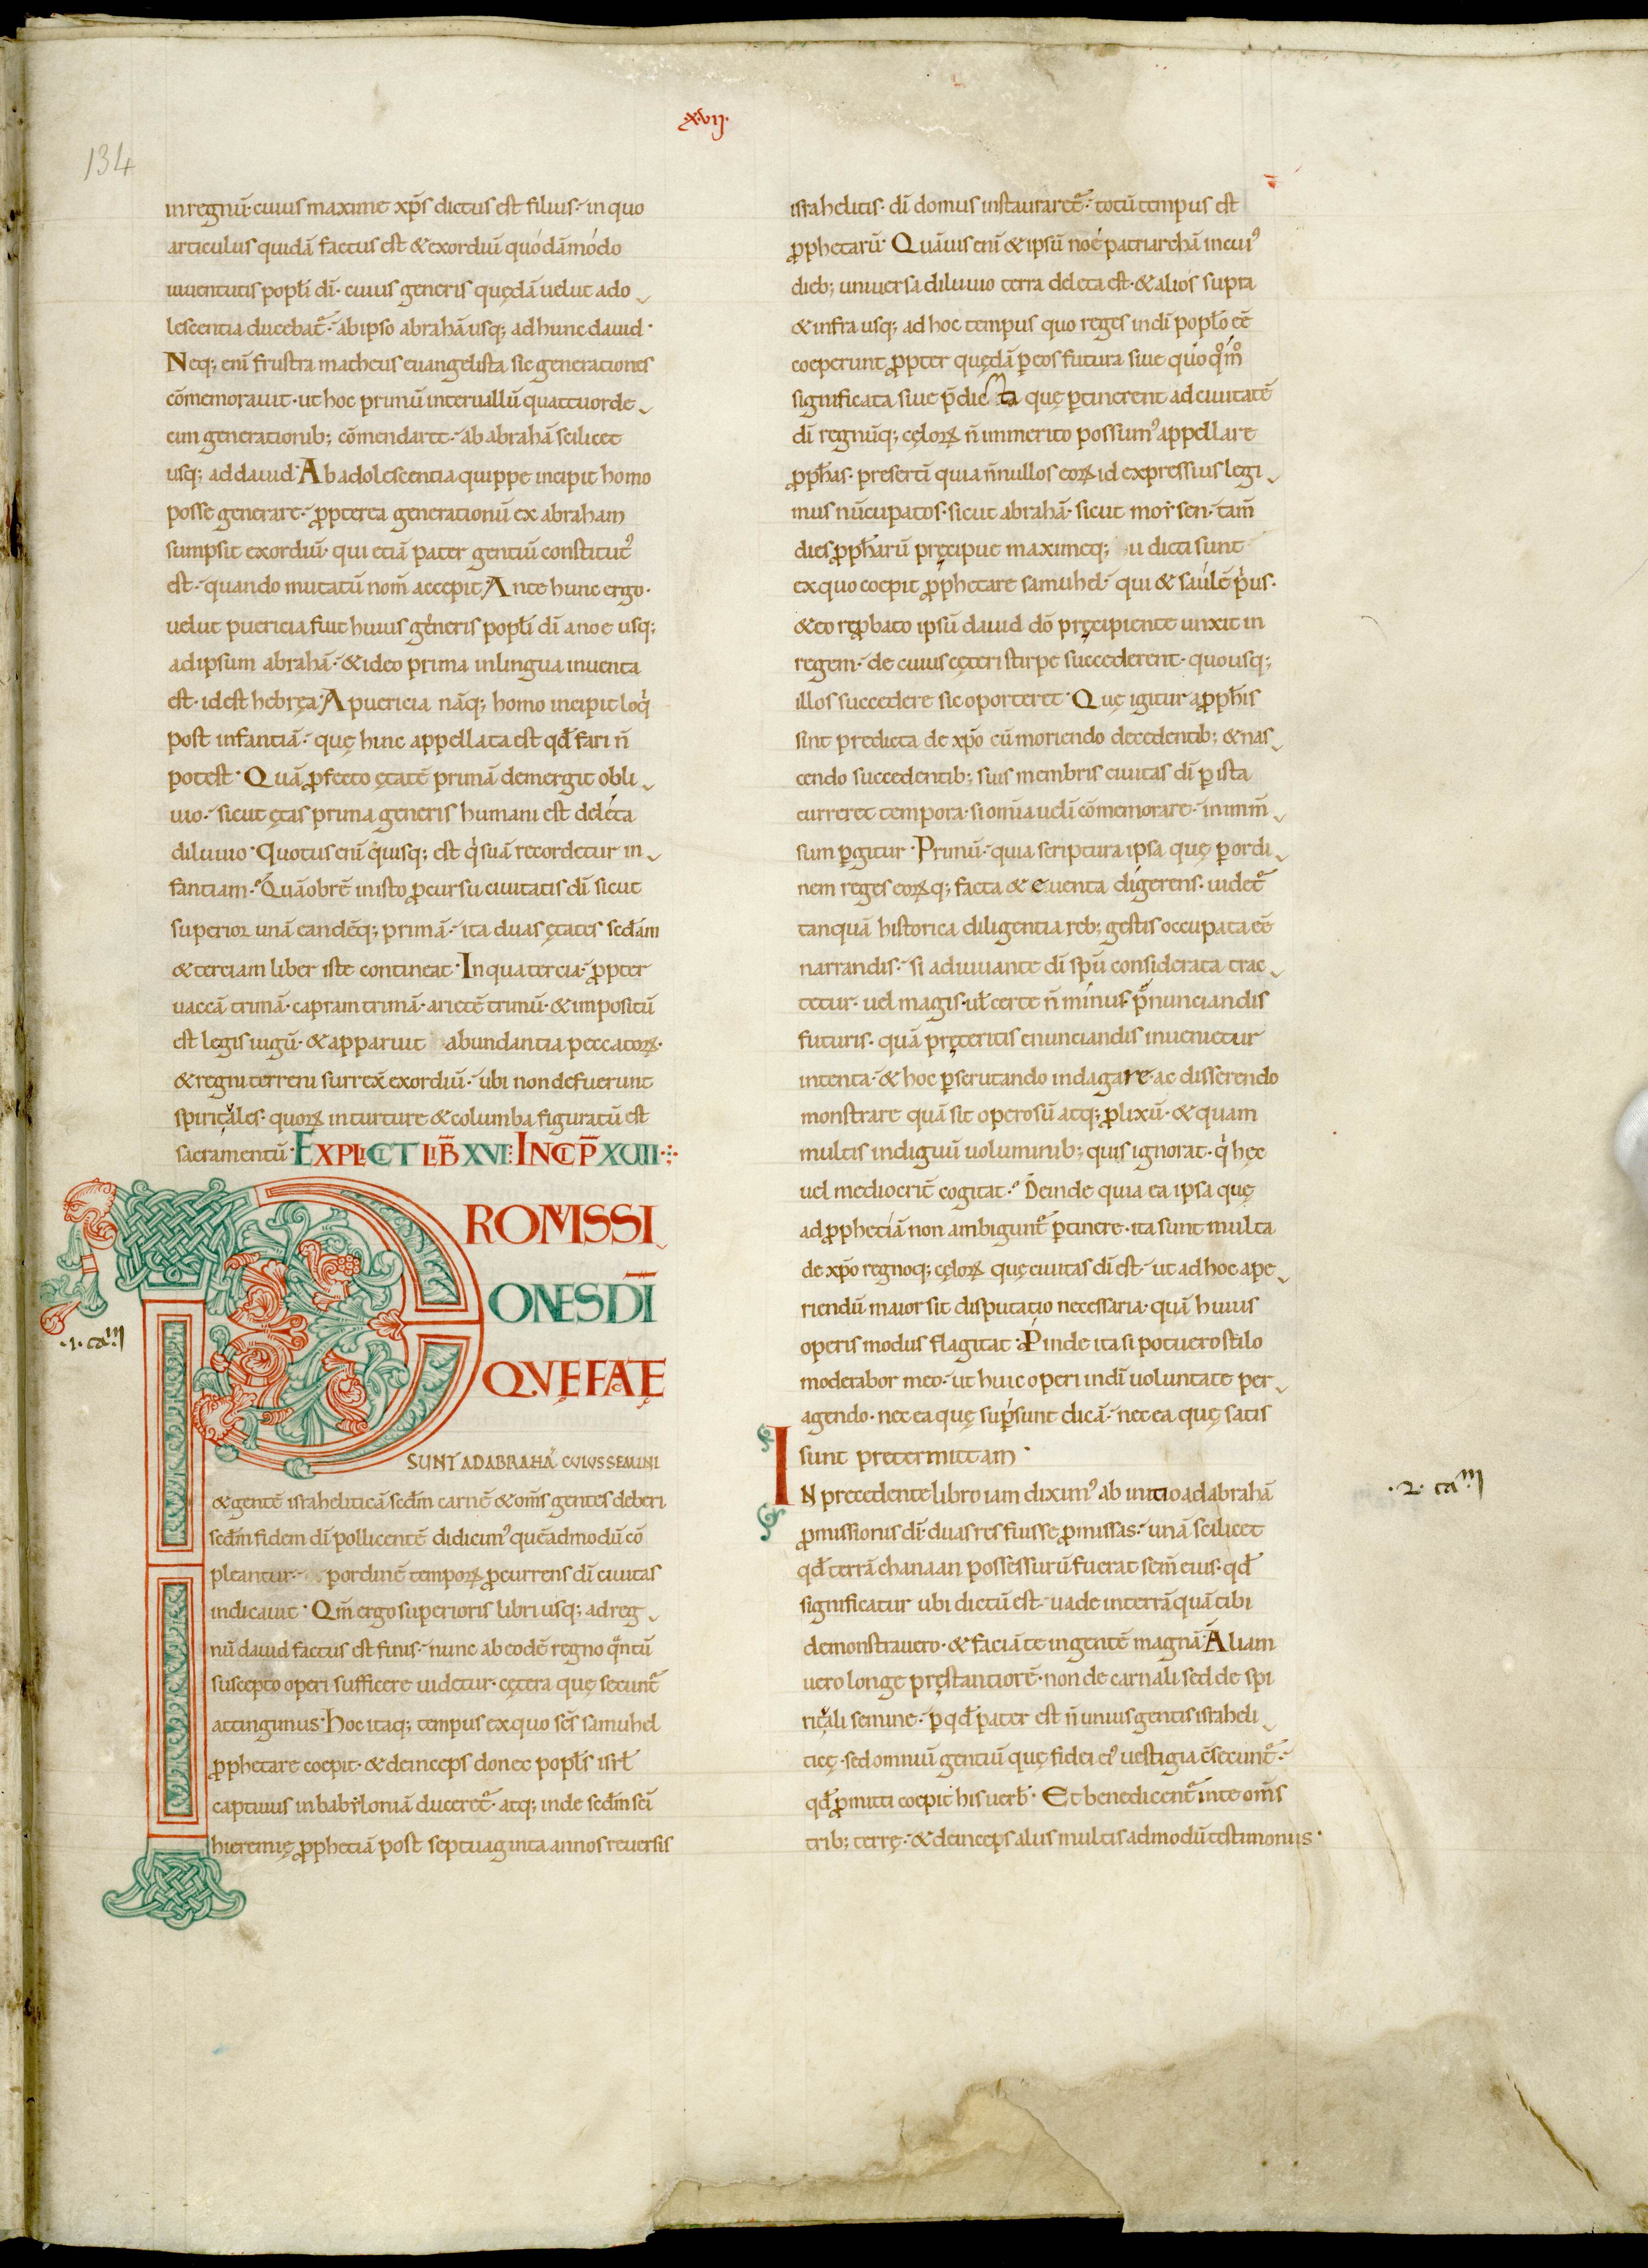 .xvij.
134
in regnū. cuius maxime xp̄s dictus est filius. in quo
articulus quidā factus est & exordiū quódāmódo
iuuentutis popl̄i dī. cuius generis quędā uelut ado
lescentia ducebat᷑. ab ipso abrahā usq; ad hunc dauid.
Neq; enī frustra matheus euangelista sic generationes
cōmemorauit. ut hoc primū interuallū quattuorde
cim generationib; cōmendaret. ab abrahā scilicet
usq; ad dauid. Ab adolescentia quippe incipit homo
posse generare. ꝓpterea generationū ex abraham
sumpsit exordiū. qui etiā pater gentiū constitutꝰ
est. quando mutatū nom̄ accepit. Ante hunc ergo.
uelut puericia fuit huius generis popl̄i dī a noe usq;
ad ipsum abrahā. & ideo prima in lingua inuenta
est. id est hebręa. A puericia nāq; homo incipit loqi
post infantiā. quę hinc appellata est qđ fari n̄
potest. Quā ꝓfecto ętatē primā demergit obli
uio. sicut ętas prima generis humani est deléta
diluuio. Quotus enī quisq; est qi suā recordetur in
fantiam. Quāobrē in isto ꝓcursu ciuitatis dī sicut
superior unā eandēq; primā. ita duas ętates secd̄am
& terciam liber iste contineat. In qua tercia. ꝓpter
uaccā trimā. capram trimā. arietē trimū. & impositū
est legis iugū. & apparuit abundantia peccatoꝝ.
& regni terreni surrex̄ exordiū. ubi non defuerunt
spiritales. quoꝝ in turture & columba figuratū est
sacramentū. EXPLICIT LIB̄ XVI. INCIP̄ XVII
PROMISSI
ONES DĪ
QVĘ FACTĘ
SUNT AD ABRAHĀ CVIVS SEMINI
& gentē israheliticā secd̄m carnē & om̄s gentes deberi
secd̄m fidem dī pollicentē didicimꝰ quēadmodū cō
pleantur. ꝑ ordinē tempoꝝ ꝓcurrens dī ciuitas
indicauit. Qm̄ ergo superioris libri usq; ad reg
nū dauid factus est finis. nunc ab eodē regno qantū
suscepto operi sufficere uidetur. cętera quę secunt᷑
attingimus. Hoc itaq; tempus ex quo sc̄s samuhel
ꝓphetare coepit. & deinceps donec popl̄s isrl̄
captiuus in babẏloniā duceret᷑. atq; inde secd̄m sc̄i
hieremię ꝓphetiā post septuaginta annos reuersis
.1. ca.m
israhelitis. dī domus instauraret᷑. totū tempus est
ꝓphetarū. Quāuis enī & ipsū noé patriarchā in cuiꝰ
dieb; uniuersa diluuio terra deleta est. & aliós supra
& infra usq; ad hoc tempus quo reges in dī popl̄o eē
coeperunt ꝓpter quędā ꝑ eos futura siue quoqm̊o
significata siue p̄dicta quę ꝑtinerent ad ciuitatē
dī regnūq; cęloꝝ n̄ immerito possumꝰ appellare
ꝓph̄as. presertī quia n̄nullos eoꝝ id expressius legi
mus nūcupatos. sicut abrahā. sicut moẏsen. tam̄
dies ꝓph̄arū pręcipue maximeq; u dicti sunt
ex quo coepit ꝓphetare samuhel. qui & saúlē pius.
& eo reꝓbato ipsū dauid dō pręcipiente unxit in
regem. de cuius cęteri stirpe succederent. quousq;
illos succedere sic oporteret. Quę igitur a ꝓph̄is
sint predicta de xp̄o cū moriendo decedentib; & nas
cendo succedentib; suis membris ciuitas dī ꝑ ista
curreret tempora. si omīa uelī cōmemorare. in imm̄
sum ꝑgitur. Primū. quia scriptura ipsa quę ꝑ ordi
nem reges eoꝝq; facta & euenta dígerens. uidet᷑
tanquā historica diligentia reb; gestis occupata eē
narrandis. si adiuuante dī sp̄u considerata trac
tetur. uel magis. ul̄ certe n̄ mínus p̄nunciandis
futuris. quā pręteritis enunciandis inuenietur
intenta. & hoc ꝑscrutando indagare. ac disserendo
monstrare quā sit operosū atq; ꝓlixū. & quam
multis indiguū uoluminib; quis ignorat. qi hęc
uel mediocrit̄ cogitat. Deinde quia ea ipsa quę
ad ꝓphetiā non ambigunt᷑ ꝑtinere. ita sunt multa
de xp̄o regnoq; cęloꝝ quę ciuitas dī est. ut ad hoc ape
riendū maior sit disputatio necessaria. quā huius
operis modus flagitat. Pinde ita si potuero stilo
moderabor meo. ut huic operi in dī uoluntate per
agendo. nec ea quę suꝑsunt dicā. nec ea quę satis
sunt pretermittam.
IN precedente libro iam diximꝰ ab initio ad abrahā
ꝓmissionis dī. duas res fuisse ꝓmissas. unā scilicet
qđ terrā chanaan possessurū fuerat sem̄ eius. qđ
significatur ubi dictū est. uade in terrā quā tibi
demonstrauero. & faciā te in gentē magnā. Aliam
uero longe pręstantiorē. non de carnali sed de spi
ritali semine. ꝑ qđ pater est n̄ unius gentis israheli
ticę. sed omniū gentiū quę fidei eiꝰ uestigia cōsecunt᷑.
qđ ꝓmitti coepit his uerb̄. Et benedicent᷑ in te om̄s
trib; terrę. & deinceps aliis multis admodū testimoniis.
.2. ca.m